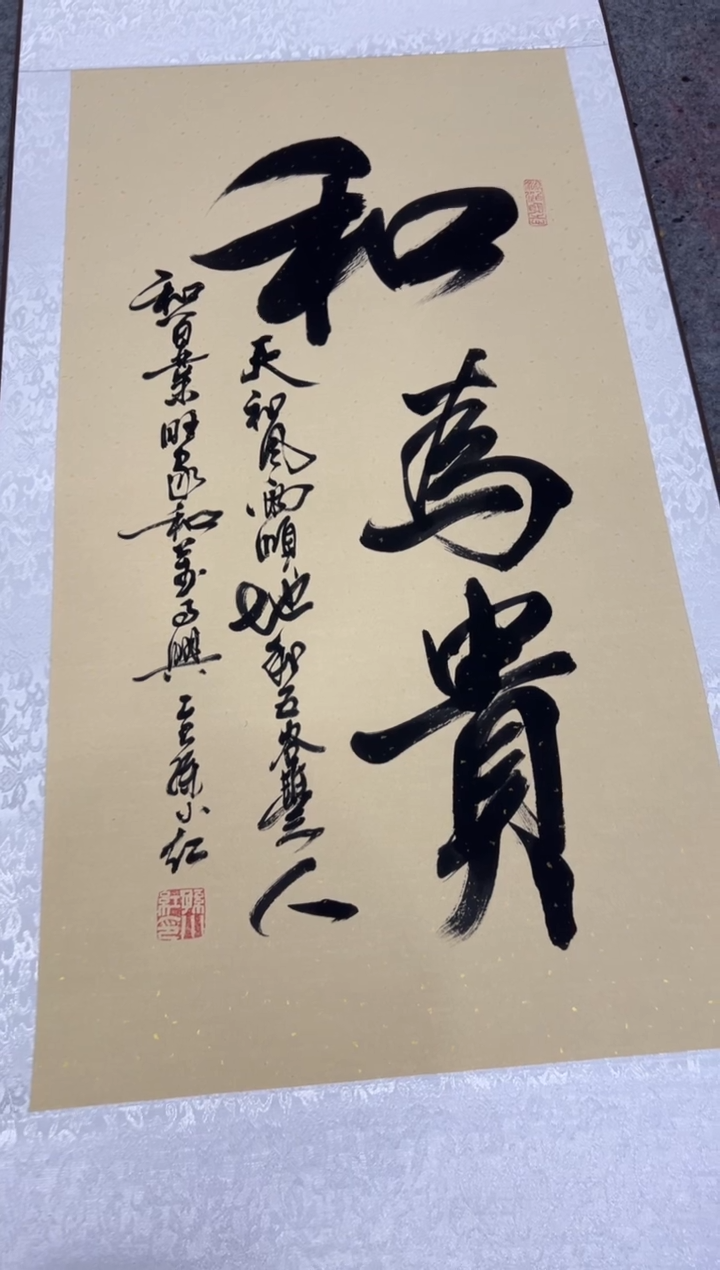 和為貴
天和風雨順地和五谷豐人
和百業旺家和萬事興
孫小紅